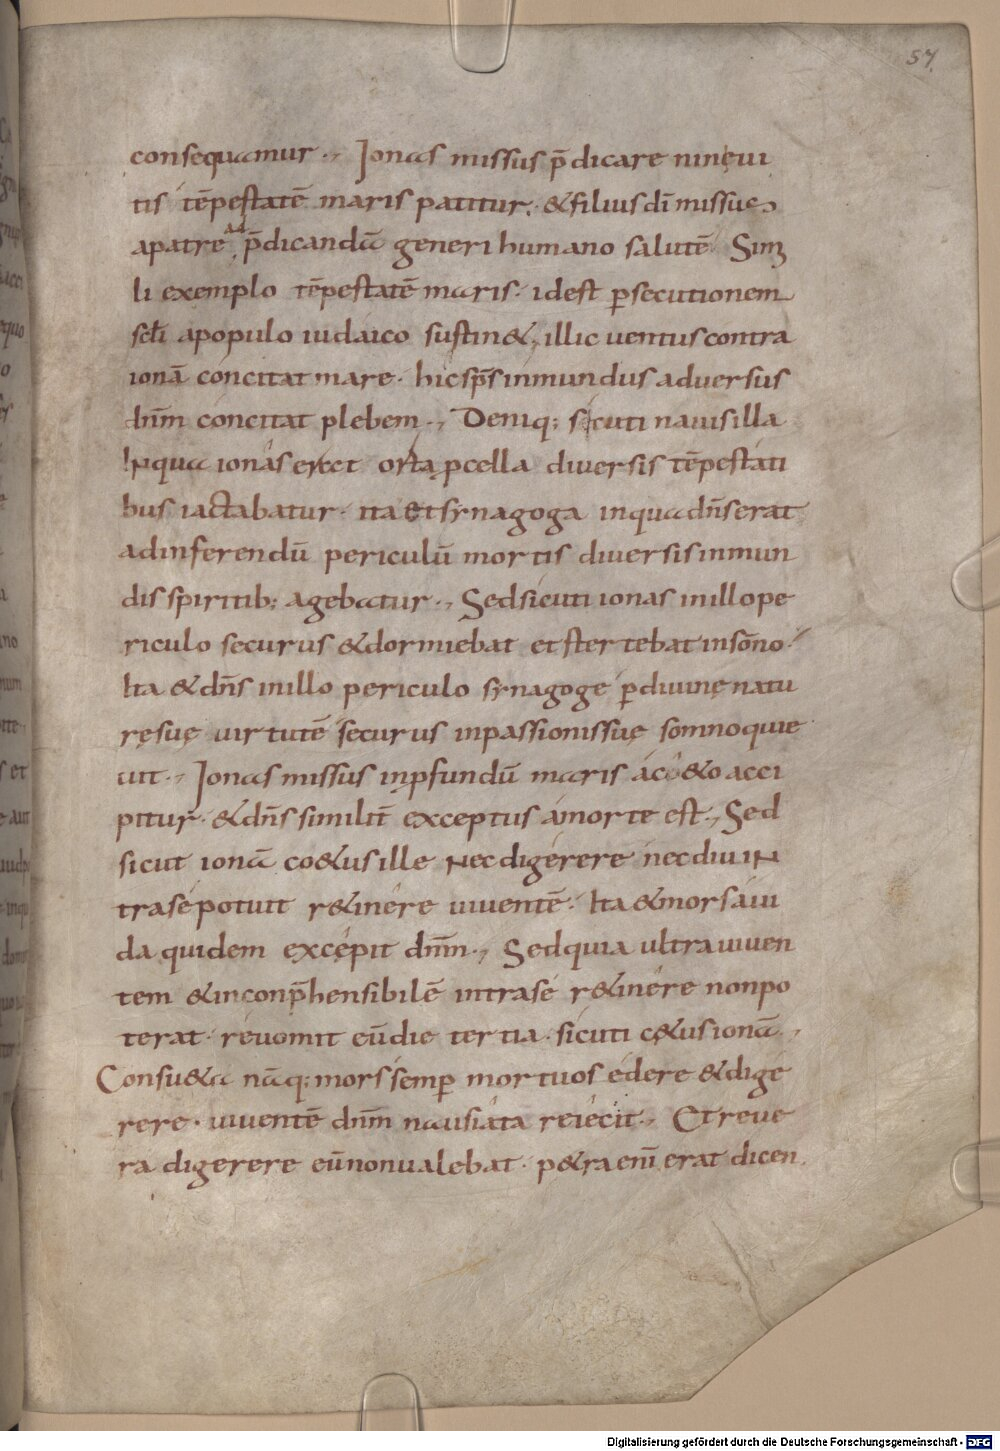 57
consequamur·, Ionas missus p̄dicare ninęui
tis tēpestatē maris patitur; & filius dī missus
apatre ad p̄dicandā generi humano salutē Simi
li exemplo tēpestatē maris· idest ꝑsecutionem
scłi apopulo iudaico sustin&, illic uentus contra
ionā concitat mare· hic sp̄s inmundus aduersus
dn̄m concitat plebem·, Deniq; sicuti nauis illa
Inqua ionas erat orta ꝓcella diuersis tēpestati
bus iactabatur· ita et synagoga inqua dn̄s erat
adinferendū periculū mortis diuersis inmun
dis spiritib; agebatur·, Sed sicuti ionas inillo pe
riculo securus & dormiebat et stertebat insōno·
Ita & dn̄s inillo periculo synagogę ꝑ diuinę natu
rę suę uirtutē securus inpassionis suę somno quie
uit·, Ionas missus inꝓfundū maris ác&o acci
pitur· & dn̄s similit̄ exceptus ámorte est·, Sed
sicut ionā co&us ille Nec digerere nec diu IN
trasé potuit r&inére uiuentē· Ita & mors áui
da quidem excępit dn̄m·, Sed quia ultra uiuen
tem & inconp̄hensibilē intrasé r&inére nonpo
terat· réuomit eū die tertia· sicuti c&us ionā·,
Consu&a nāq; mors semꝑ mortuos édere & digé
rere· uiuentē dn̄m nausiáta reiécit·, Et reue
ra digerere eū nonualebat· p&ra enī erat dicen
Digitalisierung gefördert durch die Deutsche Forschungsgemeinschaft - DFG